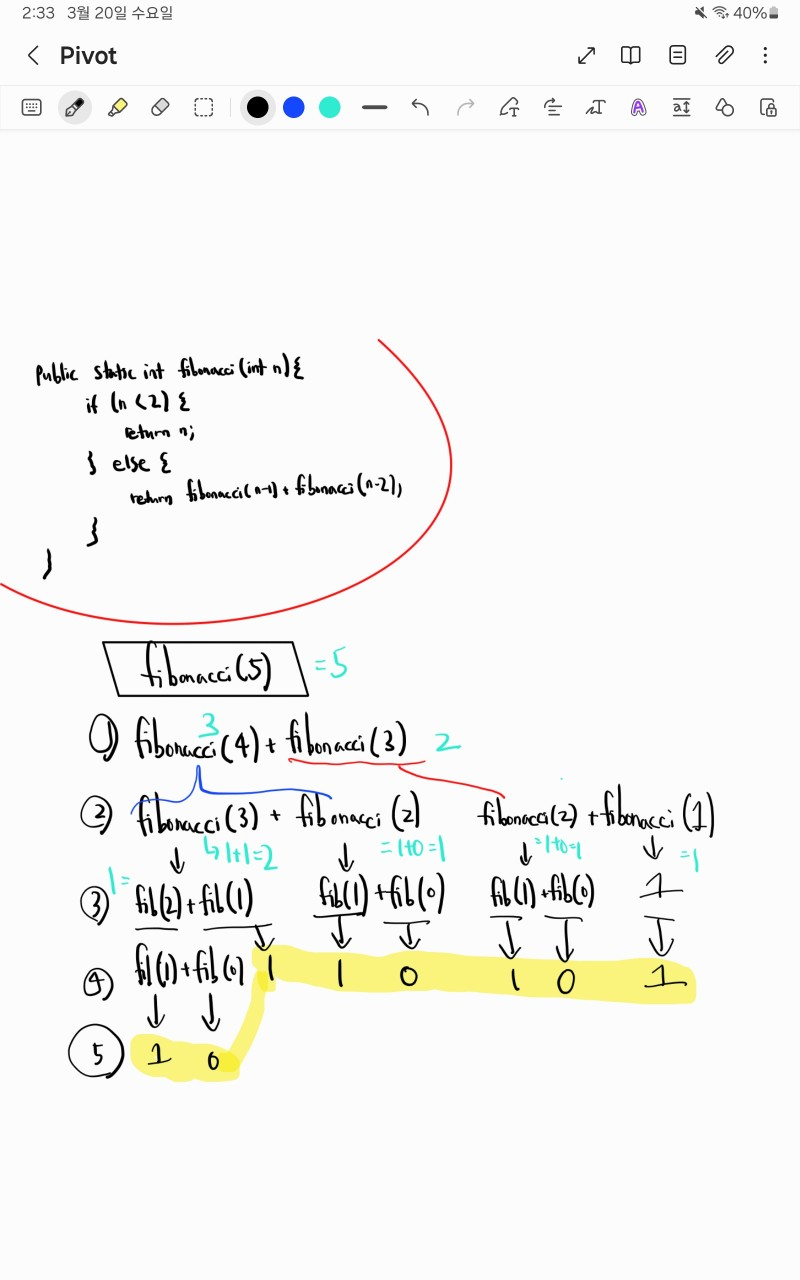 2:33 3월 20일 수요일 40%
Pivot
Public static int fibonacci(int n){
if (n<2) {
return n;
} else {
return fibonacci(n-1) + fibonacci(n-2);
}
}
fibonacci(5) =5
① fibonacci(4) + fibonacci(3) 2
3
② fibonacci(3) + fibonacci(2) fibonacci(2) + fibonacci(1)
↓ ↳1+1=2 ↓ =1+0=1 ↓ =1+0=1 ↓ =1
1=
③ fib(2)+fib(1) fib(1)+fib(0) fib(1)+fib(0) 1
④ fib(1)+fib(0) 1 1 0 1 0 1
⑤ 1 0